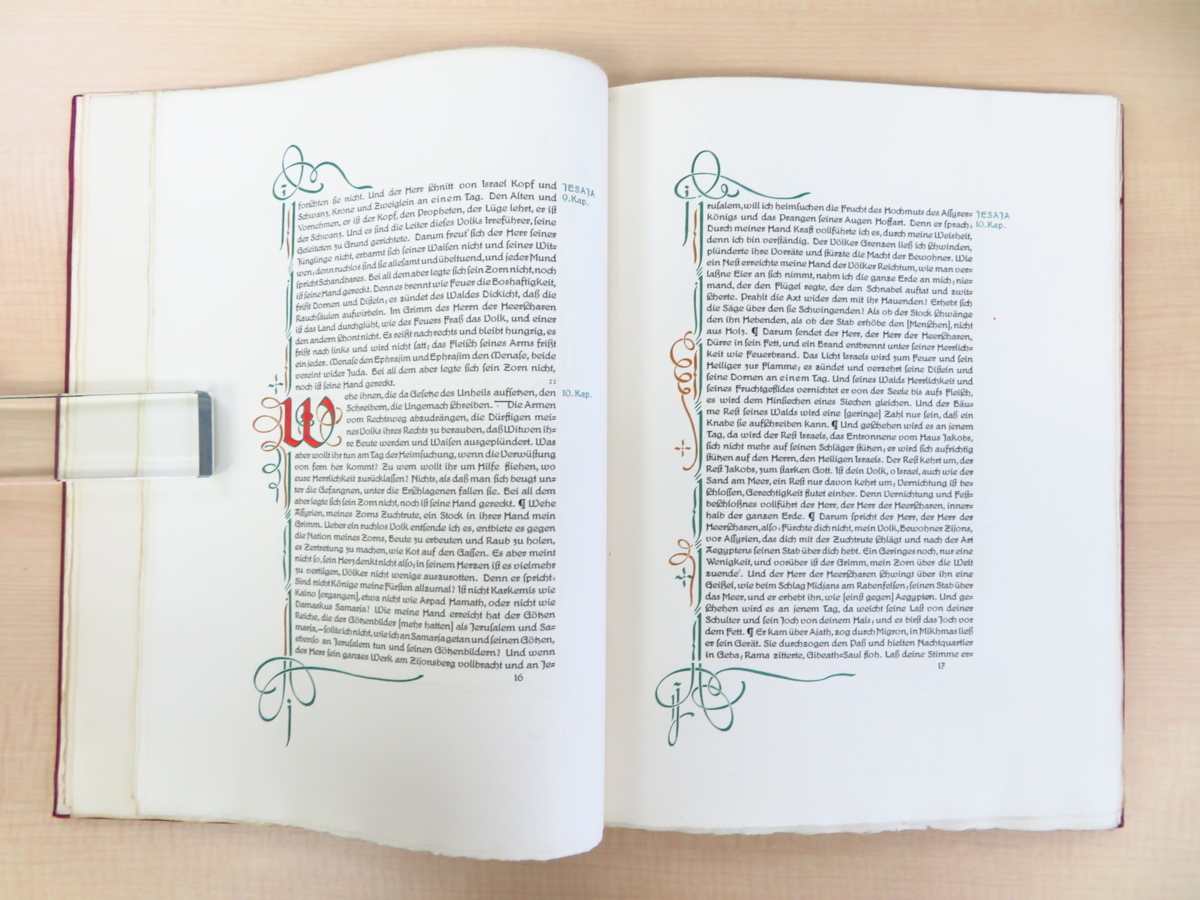 forschten sie nicht. Und der Herr schnitt von Israel Kopf und
Schwanz, Krone und Zweiglein an einem Tag. Den Alten und
Vornehmen, er ist der Kopf, den Propheten, der Lüge lehrt, er ist
der Schwanz. Und es sind die Leiter dieses Volks Irreführer, seine
Geleiteten zu Grund gerichtete. Darum freut' sich der Herr seiner
Jünglinge nicht, erbarmt sich seiner Waisen nicht und seiner Wit=
wen; denn ruchlos sind sie allesamt und übeltuend, und jeder Mund
spricht Schandbares. Bei all dem aber legte sich sein Zorn nicht, noch
ist seine Hand gereckt. Denn es brennt wie Feuer die Boshaftigkeit,
frißt Dornen und Disteln; es zündet des Waldes Dickicht, daß die
Rauchsäulen aufwirbeln. Im Grimm des Herrn der Heerscharen
ist das Land durchglüht, wie des Feuers Fraß das Volk, und einer
den andern schont nicht. Es reißt nach rechts und bleibt hungrig, es
frißt nach links und wird nicht satt; das Fleisch seines Arms frißt
ein jeder. Menase den Ephrajim und Ephrajim den Menase, beide
vereint wider Juda. Bei all dem aber legte sich sein Zorn nicht,
noch ist seine Hand gereckt.
JESAJA
9. Kap.
Wehe ihnen, die da Gesetze des Unheils aufsetzen, den
Schreibern, die Ungemach schreiben. Die Armen
vom Rechtsweg abzudrängen, die Dürftigen mei=
nes Volks ihres Rechts zu berauben, daß Witwen ih=
re Beute werden und Waisen ausgeplündert. Was
aber wollt ihr tun am Tag der Heimsuchung, wenn die Verwüstung
von fern her kommt? Zu wem wollt ihr um Hilfe fliehen, wo
eure Herrlichkeit zurücklassen? Nichts, als daß man sich beugt un=
ter die Gefangnen, unter die Erschlagenen fallen sie. Bei all dem
aber legte sich sein Zorn nicht, noch ist seine Hand gereckt. ¶ Wehe
Assyrien, meines Zorns Zuchtrute, ein Stock in ihrer Hand mein
Grimm. Ueber ein ruchlos Volk entsende ich es, entbiete es gegen
die Nation meines Zorns, Beute zu erbeuten und Raub zu holen,
es Zertretung zu machen, wie Kot auf den Gassen. Es aber meint
nicht so, sein Herz denkt nicht also; in seinem Herzen ist es vielmehr
zu vertilgen, Völker nicht wenige auszurotten. Denn er spricht:
Sind nicht Könige meine Fürsten allzumal? Ist nicht Karkemis wie
Kalno [ergangen], etwa nicht wie Arpad Hamath, oder nicht wie
Damaskus Samarja? Wie meine Hand erreicht hat der Götzen
Reiche, die der Götzenbilder [mehr hatten] als Jerusalem und Sa=
marja,–sollte ich nicht, wie ich an Samarja getan und seinen Götzen,
ebenso an Jerusalem tun und seinen Götzenbildern? Und wenn
der Herr sein ganzes Werk am Zijonsberg vollbracht und an Je=
10. Kap.
16
rusalem, will ich heimsuchen die Frucht des Hochmuts des Assyrer=
königs und das Prangen seiner Augen Hoffart. Denn er sprach;
Durch meiner Hand Kraft vollführte ich es, durch meine Weisheit,
denn ich bin verständig. Der Völker Grenzen ließ ich schwinden,
plünderte ihre Vorräte und stürzte die Macht der Bewohner. Wie
ein Nest erreichte meine Hand der Völker Reichtum, wie man ver=
laßne Eier an sich nimmt, nahm ich die ganze Erde an mich; nie=
mand, der den Flügel regte, der den Schnabel auftat und zwit=
scherte. Prahlt die Axt wider den mit ihr Hauenden? Erhebt sich
die Säge über den sie Schwingenden? Als ob der Stock schwänge
den ihn Hebenden, als ob der Stab erhöbe den [Menschen], nicht
aus Holz. ¶ Darum sendet der Herr, der Herr der Heerscharen,
Dürre in sein Fett, und ein Brand entbrennt unter seiner Herrlich=
keit wie Feuerbrand. Das Licht Israels wird zum Feuer und sein
Heiliger zur Flamme; es zündet und verzehrt seine Disteln und
seine Dornen an einem Tag. Und seines Walds Herrlichkeit und
seines Fruchtgefildes vernichtet er von der Seele bis aufs Fleisch,
es wird dem Hinsiechen eines Siechen gleichen. Und der Bäu=
me Rest seines Walds wird eine [geringe] Zahl nur sein, daß ein
Knabe sie aufschreiben kann. ¶ Und geschehen wird es an jenem
Tag, da wird der Rest Israels, das Entronnene vom Haus Jakobs,
sich nicht mehr auf seinen Schläger stützen; er wird sich aufrichtig
stützen auf den Herrn, den Heiligen Israels. Der Rest kehrt um, der
Rest Jakobs, zum starken Gott. Ist dein Volk, o Israel, auch wie der
Sand am Meer, ein Rest nur davon kehrt um; Vernichtung ist be=
schlossen, Gerechtigkeit flutet einher. Denn Vernichtung und Fest=
beschloßnes vollführt der Herr, der Herr der Heerscharen, inner=
halb der ganzen Erde. ¶ Darum spricht der Herr, der Herr der
Heerscharen, also: Fürchte dich nicht, mein Volk, Bewohner Zijons,
vor Assyrien, das dich mit der Zuchtrute schlägt und nach der Art
Aegyptens seinen Stab über dich hebt. Ein Geringes noch, nur eine
Wenigkeit, und vorüber ist der Grimm, mein Zorn über die Welt
zuende'. Und der Herr der Heerscharen schwingt über ihn eine
Geißel, wie beim Schlag Midjans am Rabenfelsen; seinen Stab über
das Meer, und er erhebt ihn, wie [einst gegen] Aegypten. Und ge=
schehen wird es an jenem Tag, da weicht seine Last von deiner
Schulter und sein Joch von deinem Hals; und es birst das Joch vor
dem Fett. ¶ Er kam über Ajath, zog durch Migron, in Mikhmas ließ
er sein Gerät. Sie durchzogen den Paß und hielten Nachtquartier
in Geba; Rama zitterte, Gibeath=Saul floh. Laß deine Stimme er=
JESAJA
10. Kap.
17